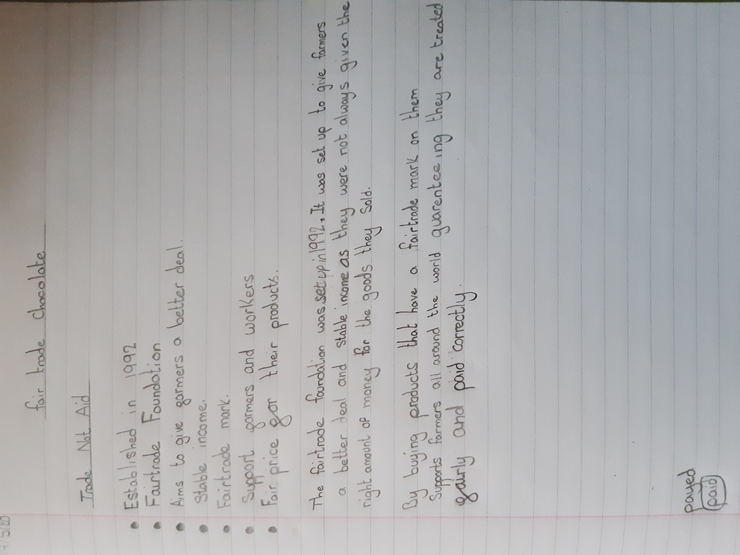 fair trade chocolate
Trade Not Aid
• Established in 1992
• Fairtrade Foundation
• Aims to give garmers a better deal.
• Stable income.
• Fairtrade mark.
• Support garmers and workers
• Fair price gor their products.
The fairtrade foundation was set up in 1992. It was set up to give farmers
a better deal and stable income as they were not always given the
right amount of money for the goods they sold.
By buying products that have a fairtrade mark on them
supports farmers all around the world guarenteeing they are treated
gairly and paid correctly.
payed
paid